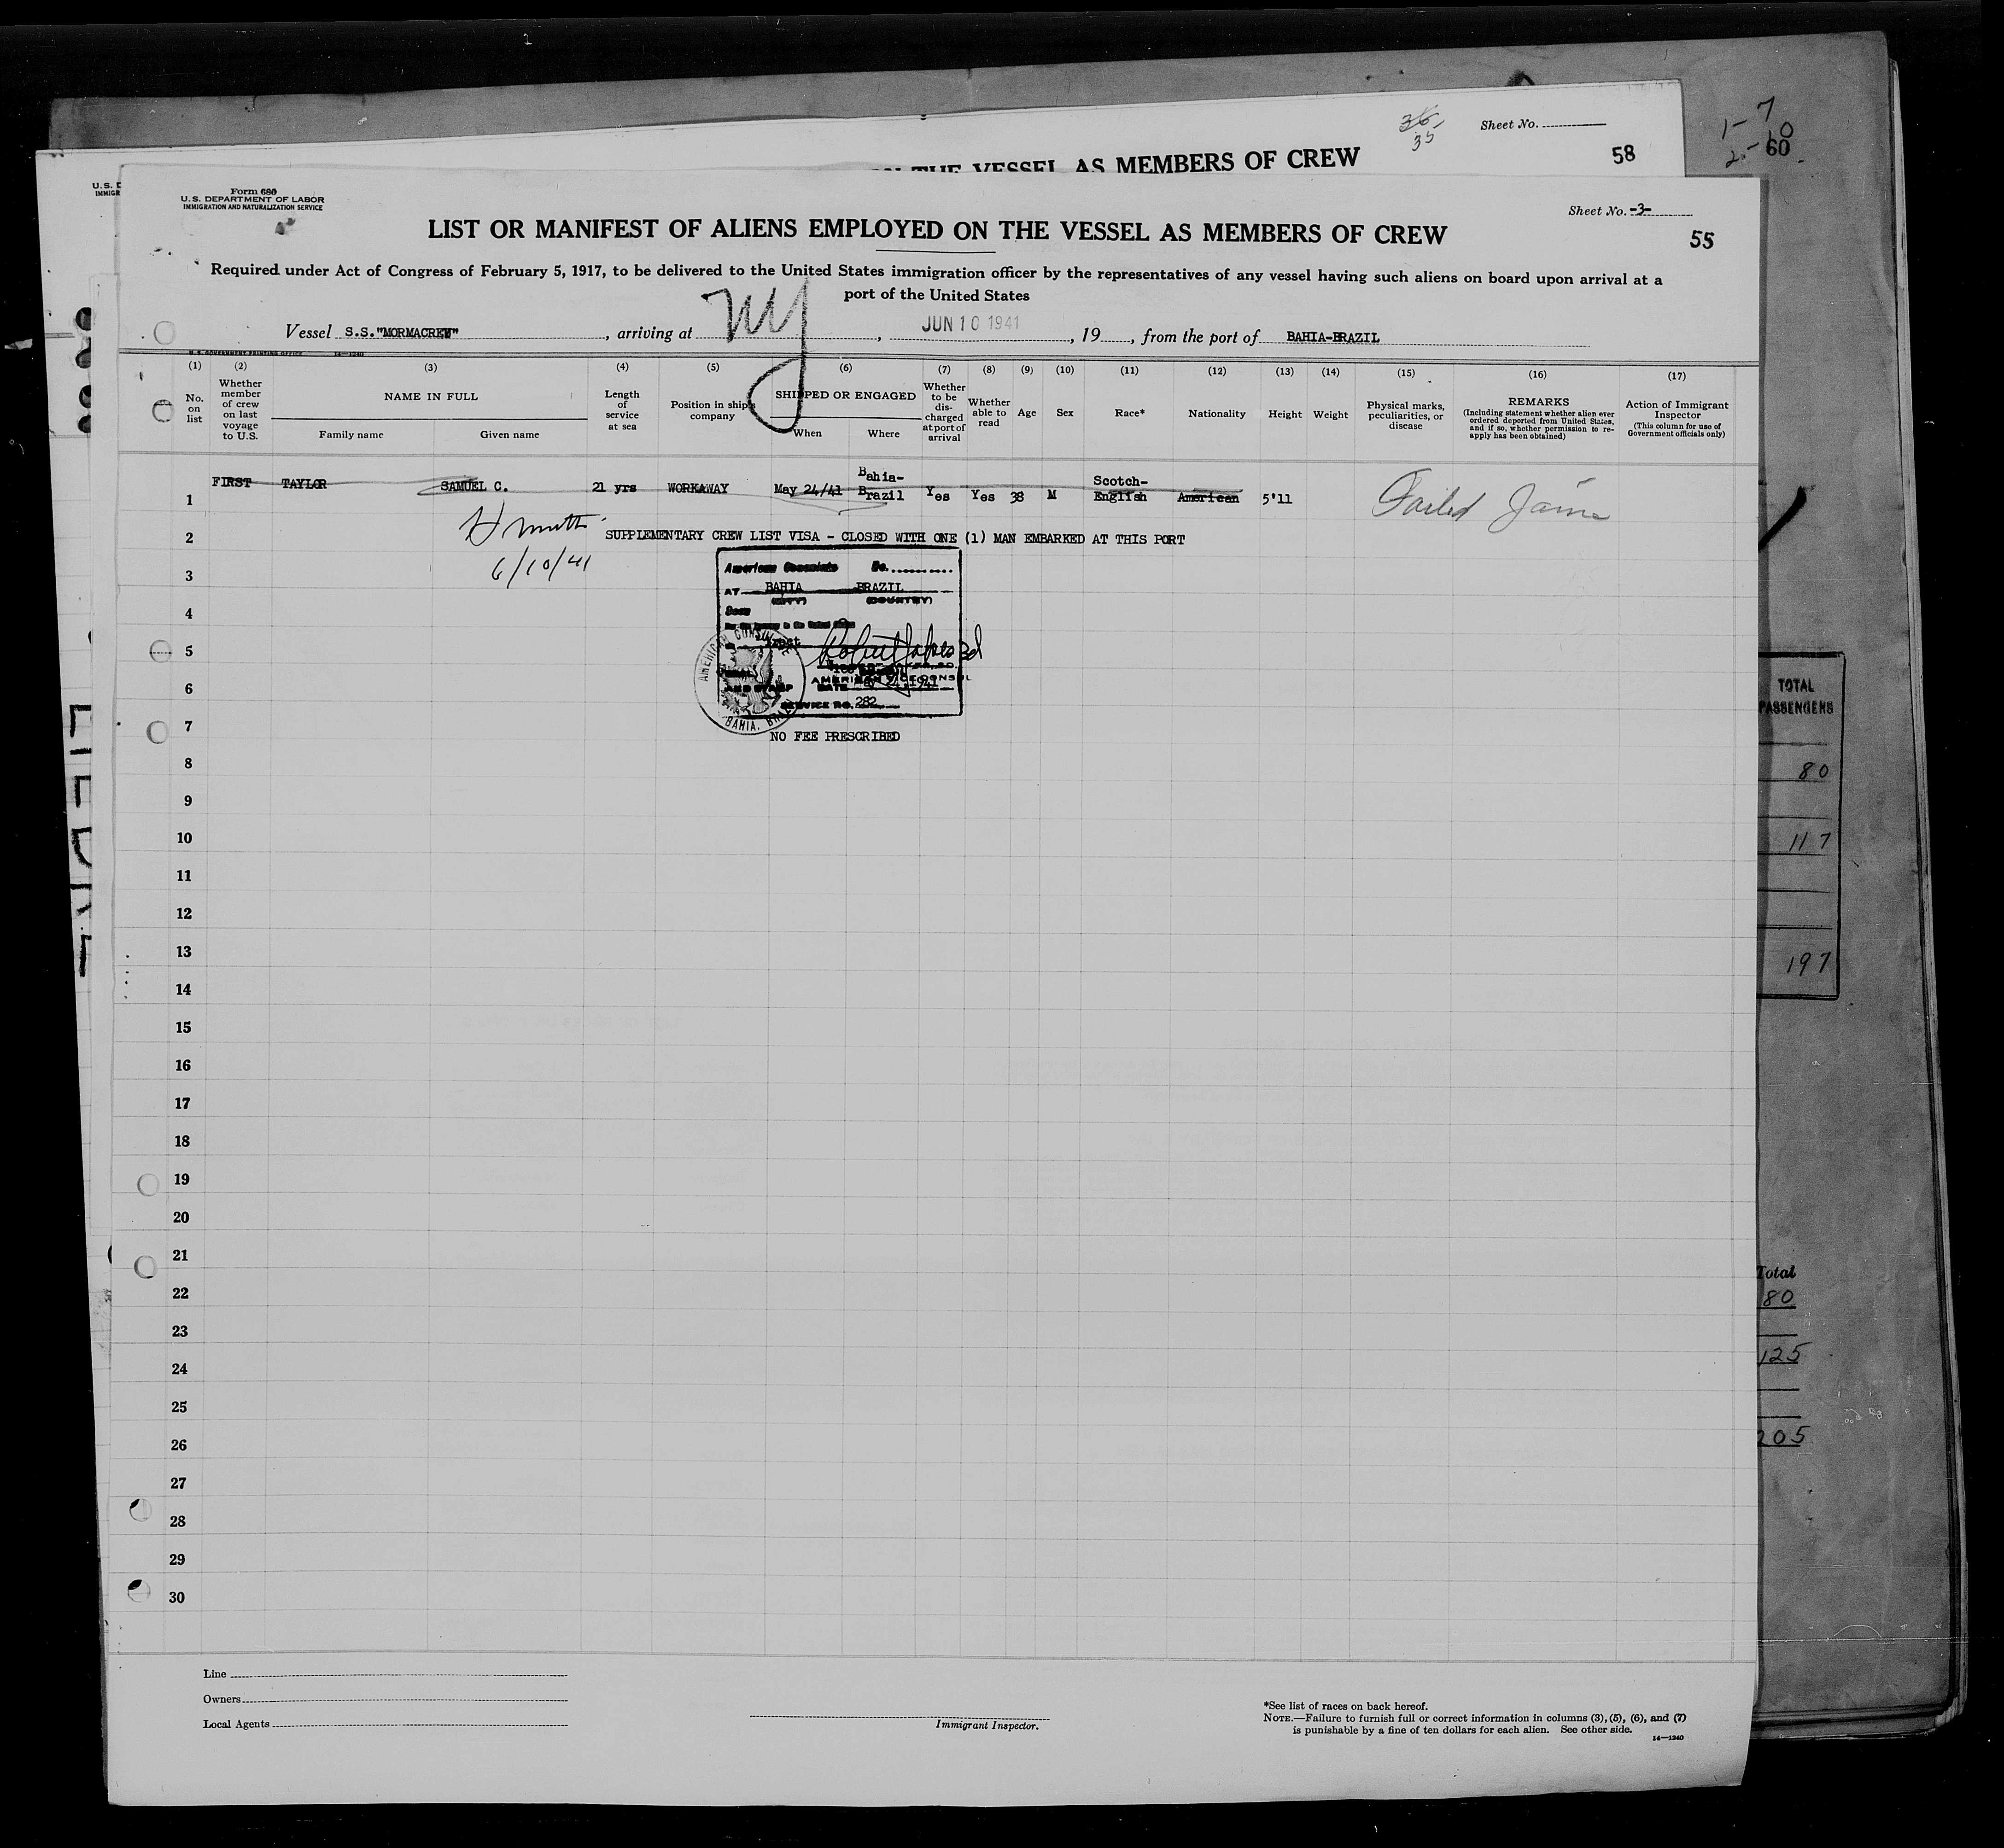 36
35
Sheet No.
THE VESSEL AS MEMBERS OF CREW
58
1- 7
60
U.S. D
IMMIGR
Form 680
U.S. DEPARTMENT OF LABOR
IMMIGRATION AND NATURALIZATION SERVICE
Sheet No. -3-
LIST OR MANIFEST OF ALIENS EMPLOYED ON THE VESSEL AS MEMBERS OF CREW
55
Required under Act of Congress of February 5, 1917, to be delivered to the United States immigration officer by the representatives of any vessel having such aliens on board upon arrival at a
port of the United States
Vessel S.S."MORMACREW", arriving at NY, JUN 10 1941, 19, from the port of BAHIA-BRAZIL
U.S. GOVERNMENT PRINTING OFFICE 14-1240
(1) (2) (3) (4) (5) (6) (7) (8) (9) (10) (11) (12) (13) (14) (15) (16) (17)
No. on list
Whether member of crew on last voyage to U.S.
NAME IN FULL
Family name
Given name
Length of service at sea
Position in ship's company
SHIPPED OR ENGAGED
When
Where
Whether to be discharged at port of arrival
Whether able to read
Age
Sex
Race*
Nationality
Height
Weight
Physical marks, peculiarities, or disease
REMARKS
(Including statement whether alien ever ordered deported from United States, and if so, whether permission to re-apply has been obtained)
Action of Immigrant Inspector
(This column for use of Government officials only)
1 FIRST TAYLOR SAMUEL C. 21 yrs WORKAWAY May 24/41 Bahia-Brazil Yes Yes 38 M Scotch-English American 5'11
2 SUPPLEMENTARY CREW LIST VISA - CLOSED WITH ONE (1) MAN EMBARKED AT THIS PORT
6/10/41
3
American Consulate No.
AT BAHIA BRAZIL
(CITY) (COUNTRY)
4
Seen
For the journey to the United States
5
6
AMERICAN VICE CONSUL
DATE May 24, 1941
SERVICE NO. 282
BAHIA, BRAZIL
7
NO FEE PRESCRIBED
8
9
10
11
12
13
14
15
16
17
18
19
20
21
22
23
24
25
26
27
28
29
30
TOTAL
PASSENGERS
80
117
197
Total
80
125
205
Line
Owners
Local Agents
Immigrant Inspector.
*See list of races on back hereof.
NOTE.—Failure to furnish full or correct information in columns (3), (5), (6), and (7)
is punishable by a fine of ten dollars for each alien. See other side.
14—1240